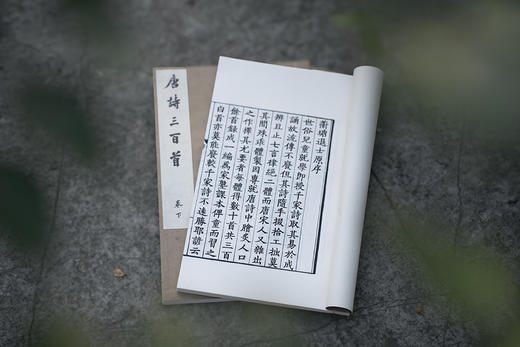 蘅塘退士原序
世俗兒童就學即授千家詩取其易於成
誦故流傳不廢但其詩隨手掇拾工拙莫
辨且止七言律絕二體而唐宋人又雜出
其間殊乖體製因專就唐詩中膾炙人口
之作擇其尤要者每體得數十首共三百
餘首錄成一編為家塾課本俾童而習之
白首亦莫能廢較千家詩不遠勝耶諺云
唐詩三百首
卷下